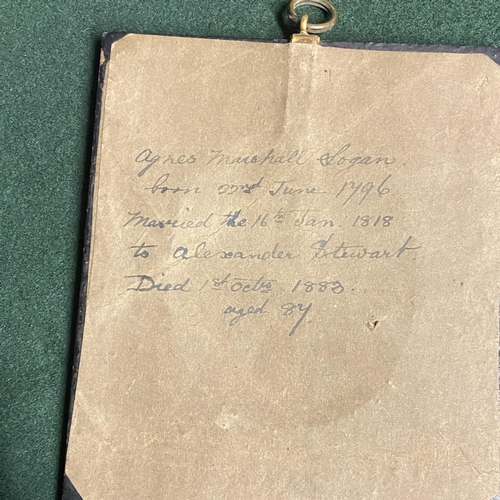 Agnes Marshall Logan.
born 22nd June 1796
Married the 16th Jan 1818
to Alexander Stewart.
Died 1st Octbr 1883.
aged 87